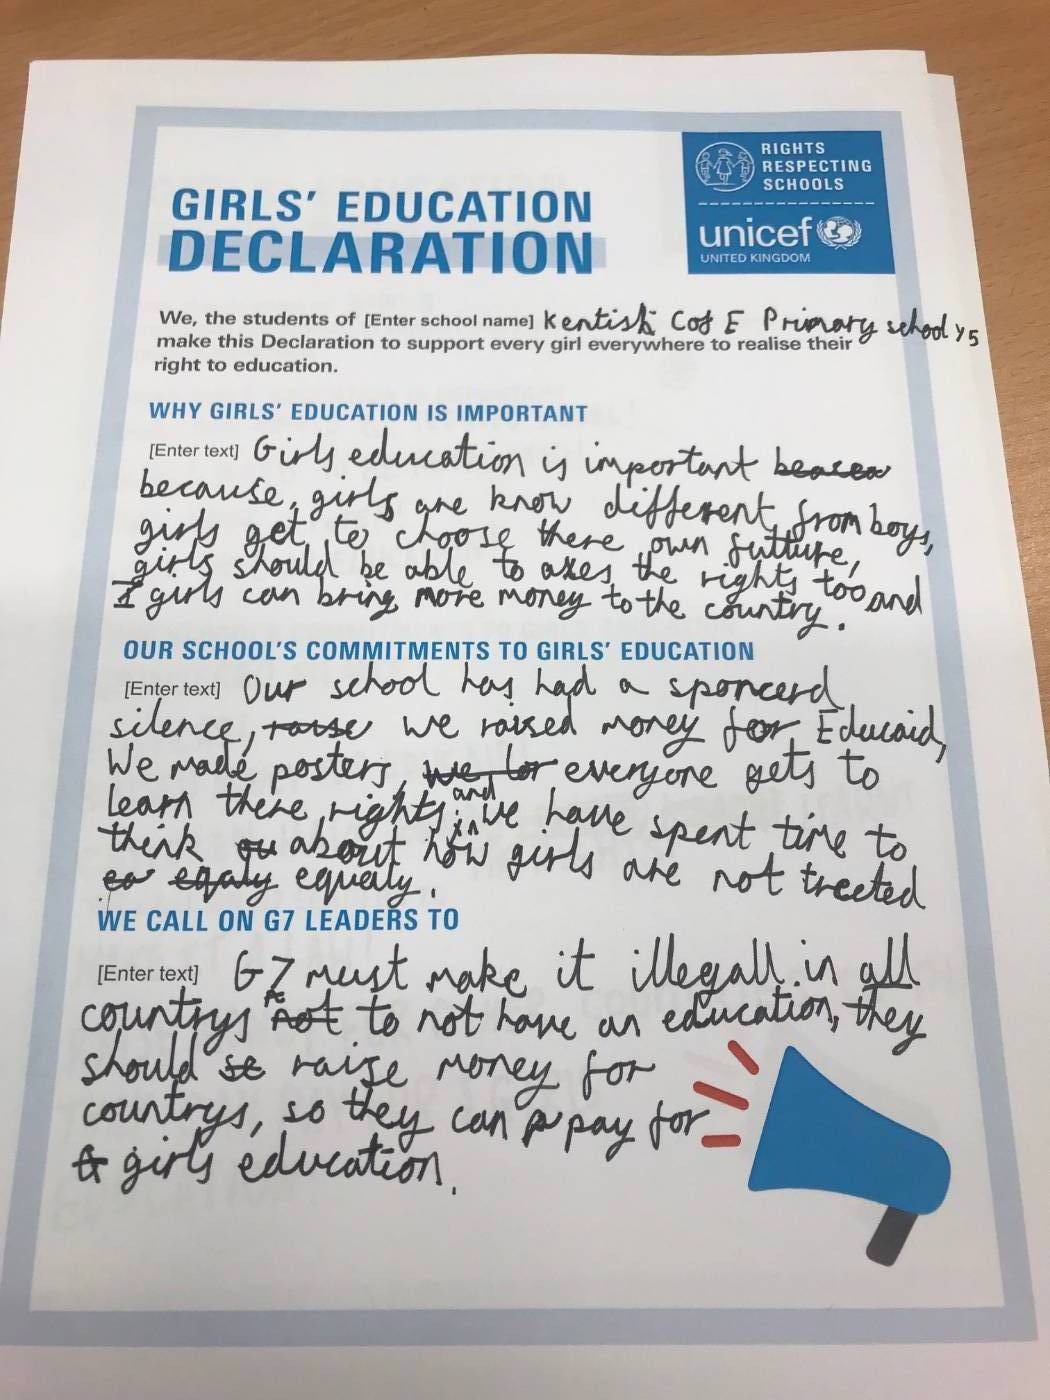 RIGHTS
RESPECTING
SCHOOLS
unicef
UNITED KINGDOM
GIRLS' EDUCATION
DECLARATION
We, the students of [Enter school name] Kentish Cof E Primary school y5
make this Declaration to support every girl everywhere to realise their
right to education.
WHY GIRLS' EDUCATION IS IMPORTANT
[Enter text] Girls education is important
because, girls are know different from boys,
girls get to choose there own futture,
girls should be able to axes the rights too and
girls can bring more money to the country.
OUR SCHOOL'S COMMITMENTS TO GIRLS' EDUCATION
[Enter text] Our school has had a sponcerd
silence, raise we raised money for Educaid,
We made posters, everyone gets to
learn there rights, and we have spent time to
think about how girls are not treeted
eqaly equaly.
WE CALL ON G7 LEADERS TO
[Enter text] G7 must make it illegall in all
countrys not to not have an education, they
should raise money for
countrys, so they can pay for
girls education.